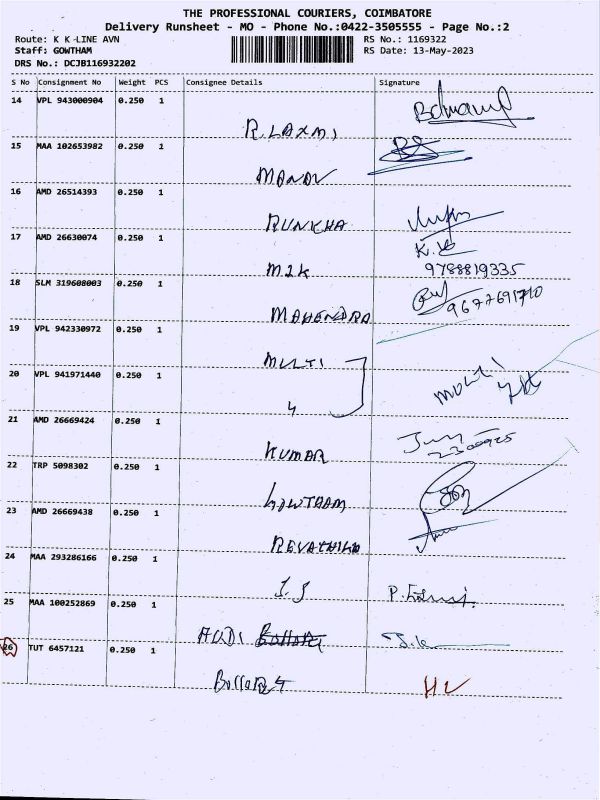 THE PROFESSIONAL COURIERS, COIMBATORE
Delivery Runsheet - MO - Phone No.:0422-3505555 - Page No.:2
Route: K K-LINE AVN RS No.: 1169322
Staff: GOWTHAM RS Date: 13-May-2023
DRS No.: DCJB116932202
S No Consignment No Weight PCS Consignee Details Signature
14 VPL 943000904 0.250 1
R.LAXMI
15 MAA 102653982 0.250 1
MANAV
16 AMD 26514393 0.250 1
RUNKHA
17 AMD 26630074 0.250 1 K.K
M2K 9788819335
18 SLM 319608003 0.250 1
MAHENDRA 9677691710
19 VPL 942330972 0.250 1
MULTI
20 VPL 941971440 0.250 1 MULTI
4
21 AMD 26669424 0.250 1
KUMAR 2300925
22 TRP 5098302 0.250 1
GOWTHAM
23 AMD 26669438 0.250 1
REVATHI
24 MAA 293286166 0.250 1
I.J P.
25 MAA 100252869 0.250 1
AUDI J.K
26 TUT 6457121 0.250 1